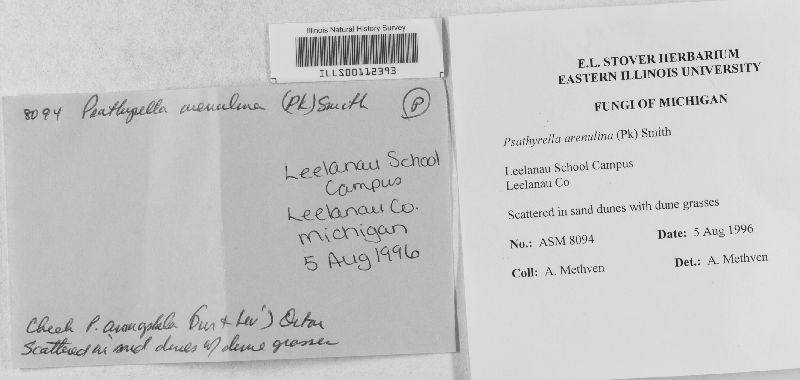 Illinois Natural History Survey
ILLS00112393
8094 Psathyrella arenulina (Pk) Smith
P
Leelanau School
Campus
Leelanau Co.
Michigan
5 Aug 1996
Check P. (Dur & Lev') Orton
Scattered in sand dunes w/ dune grasses
E.L. STOVER HERBARIUM
EASTERN ILLINOIS UNIVERSITY
FUNGI OF MICHIGAN
Psathyrella arenulina (Pk) Smith
Leelanau School Campus
Leelanau Co
Scattered in sand dunes with dune grasses
No.: ASM 8094 Date: 5 Aug 1996
Coll: A. Methven Det.: A. Methven